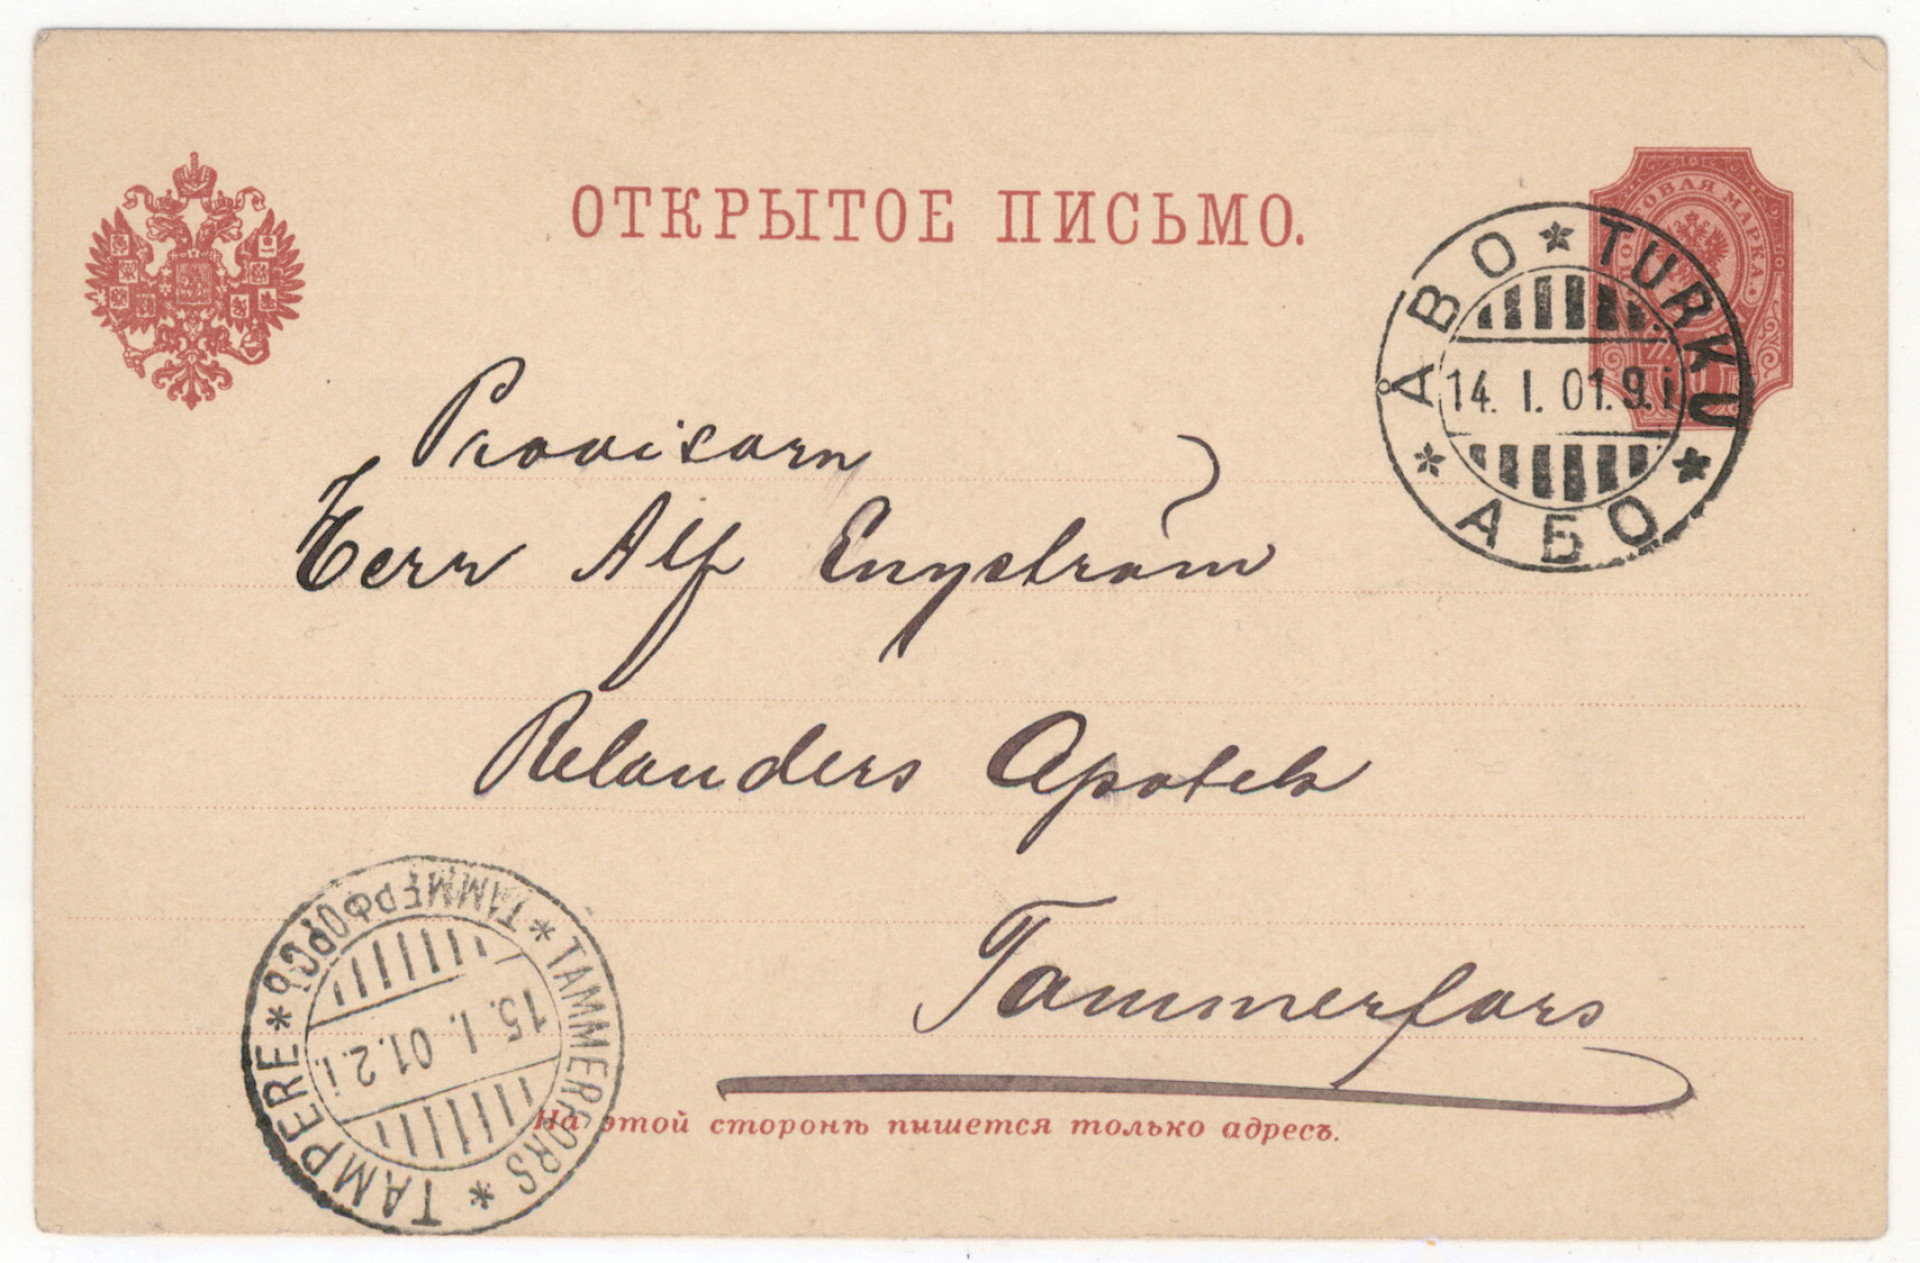 ОТКРЫТОЕ ПИСЬМО.
ПОЧТОВАЯ МАРКА
ÅBO * TURKU * АБО *
14. I. 01. 9. i
Provisorn
Herr Alf Engström
Relanders Apotek
Tammerfors
TAMMERFORS * TAMPERE * ТАММЕРФОРСЪ *
15. I. 01. 2. i.
На этой сторонѣ пишется только адресъ.